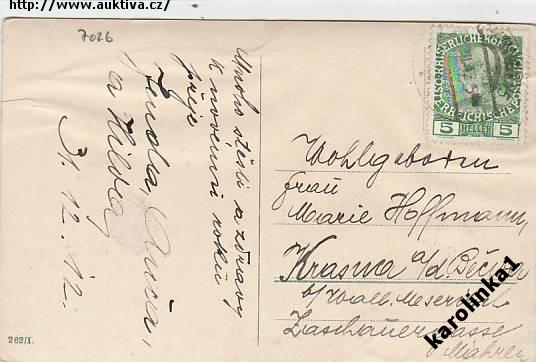 http://www.auktiva.cz/
7026
Mnoho štěstí a zdraví
k novému roku
přeje
Jenda, Ruča,
a Hilda
31. 12. 12.
262/I.
KAISERLICHE KÖNIGLICHE
ÖSTERREICHISCHE POST
5 HELLER 5
Wohlgeboren
Frau
Marie Hoffmann,
Krasna a/d Bečwa
b/ Wall. Meseritsch
Zaschauergasse
Mähren
karolinka1